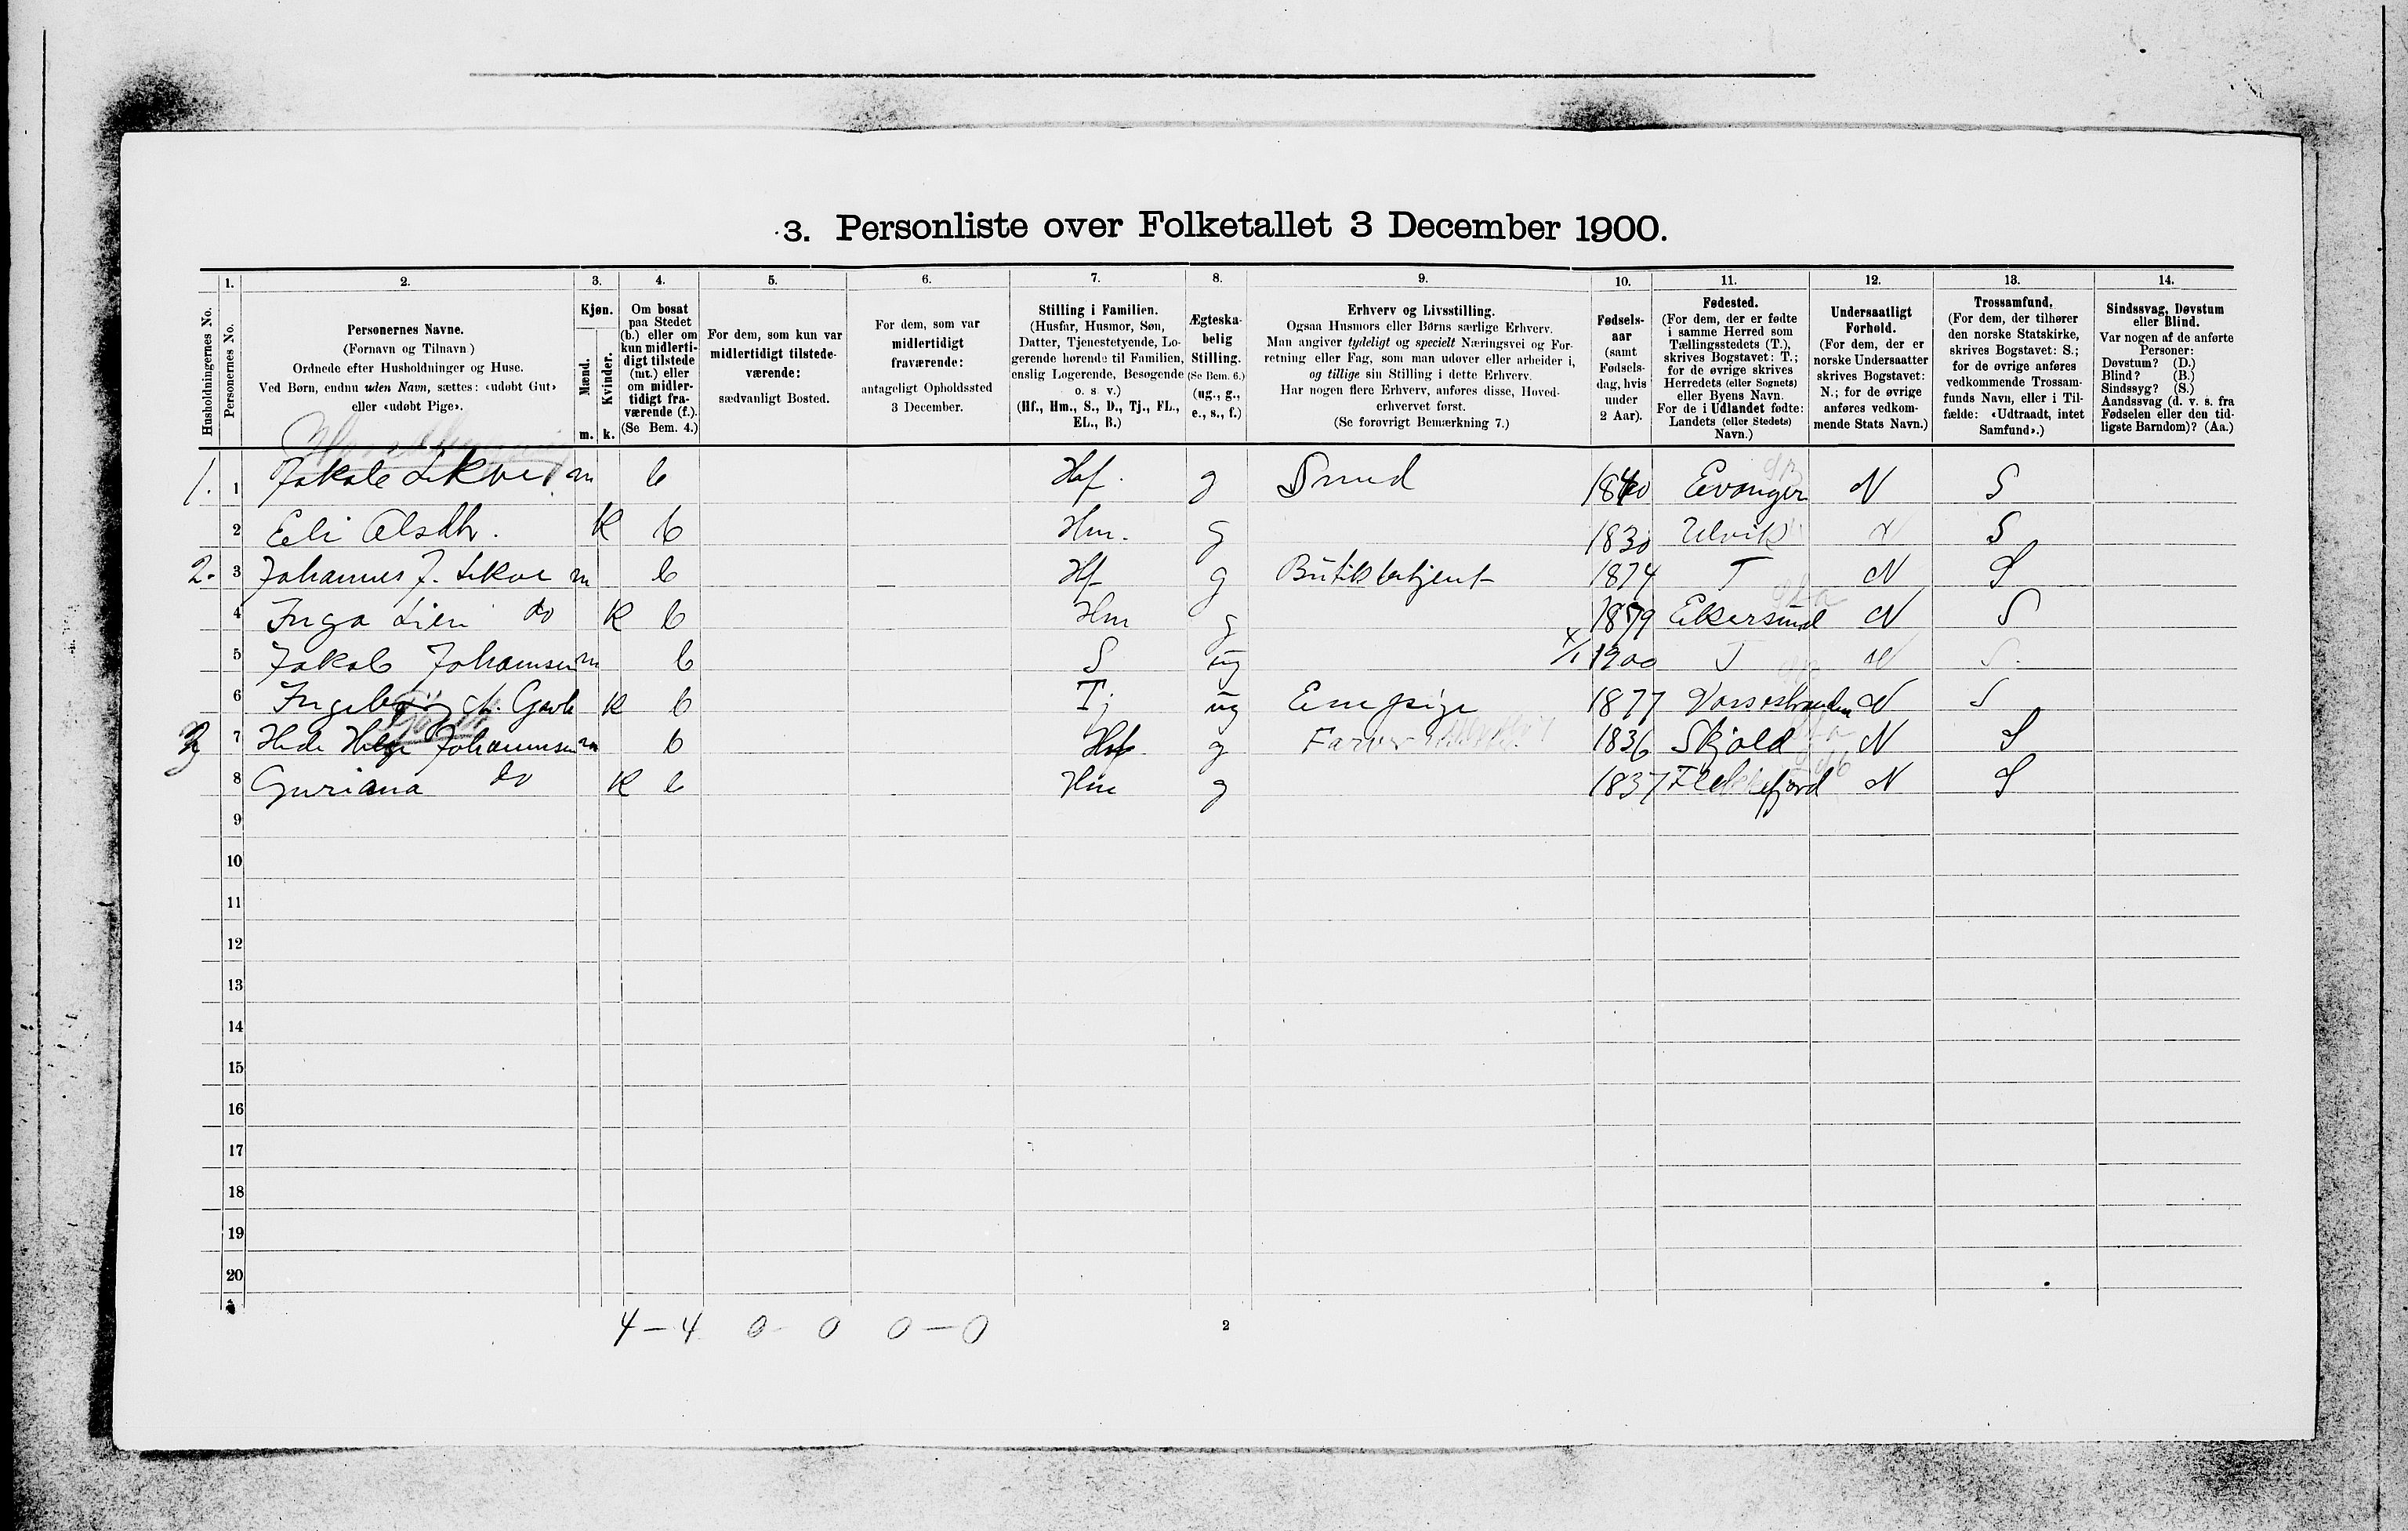 3. Personliste over Folketallet 3 December 1900.
1. 2. 3. 4. 5. 6. 7. 8. 9. 10. 11. 12. 13. 14.
Husholdningernes No.
Personernes No.
Personernes Navne.
(Fornavn og Tilnavn)
Ordnede efter Husholdninger og Huse.
Ved Børn, endnu uden Navn, sættes: «udøbt Gut»
eller «udøbt Pige».
Kjøn.
Mænd.
Kvinder.
m. k.
Om bosat
paa Stedet
(b.) eller om
kun midlerti-
digt tilstede
(mt.) eller
om midler-
tidigt fra-
værende (f.).
(Se Bem. 4.)
For dem, som kun var
midlertidigt tilstede-
værende:
sædvanligt Bosted.
For dem, som var
midlertidigt
fraværende:
antageligt Opholdssted
3 December.
Stilling i Familien.
(Husfar, Husmor, Søn,
Datter, Tjenestetyende, Lo-
gerende hørende til Familien,
enslig Logerende, Besøgende
o. s. v.)
(Hf., Hm., S., D., Tj., FL.,
EL., B.)
Ægteska-
belig
Stilling.
(Se Bem. 6.)
(ug., g.,
e., s., f.)
Erhverv og Livsstilling.
Ogsaa Husmors eller Børns særlige Erhverv.
Man angiver tydeligt og specielt Næringsvei og For-
retning eller Fag, som man udøver eller arbeider i,
og tillige sin Stilling i dette Erhverv.
Har nogen flere Erhverv, anføres disse, Hoved-
erhvervet først.
(Se forøvrigt Bemærkning 7.)
Fødsels-
aar
(samt
Fødsels-
dag, hvis
under
2 Aar).
Fødested.
(For dem, der er fødte
i samme Herred som
Tællingsstedets (T.),
skrives Bogstavet: T.;
for de øvrige skrives
Herredets (eller Sognets)
eller Byens Navn.
For de i Udlandet fødte:
Landets (eller Stedets)
Navn.)
Undersaatligt
Forhold.
(For dem, der er
norske Undersaatter
skrives Bogstavet:
N.; for de øvrige
anføres vedkom-
mende Stats Navn.)
Trossamfund,
(For dem, der tilhører
den norske Statskirke,
skrives Bogstavet: S.;
for de øvrige anføres
vedkommende Trossam-
funds Navn, eller i Til-
fælde: «Udtraadt, intet
Samfund».)
Sindssvag, Døvstum
eller Blind.
Var nogen af de anførte
Personer:
Døvstum? (D.)
Blind? (B.)
Sindssyg? (S.)
Aandssvag (d. v. s. fra
Fødselen eller den tid-
ligste Barndom)? (Aa.)
1. 1 Jakob m b Hf. g Smed Evanger N S
2 Eli Olsdtr. k b Hm. g 1830 Ulvik N S
2. 3 Johannes J. m b Hf g 1874 T N S
4 Inga do k b Hm g 1879 Ekersund N S
5 Jakob Johannsen m b S ug 1900 T N S.
6 k b Tj ug Enepige 1877 N S
3 7 Johannsen m b Hf g Farver 1836 Skjold N S
8 Guriana do k b Hm g 1837 Flekkefjord N S
9
10
11
12
13
14
15
16
17
18
19
20
4 – 4 0 - 0 0 – 0
2